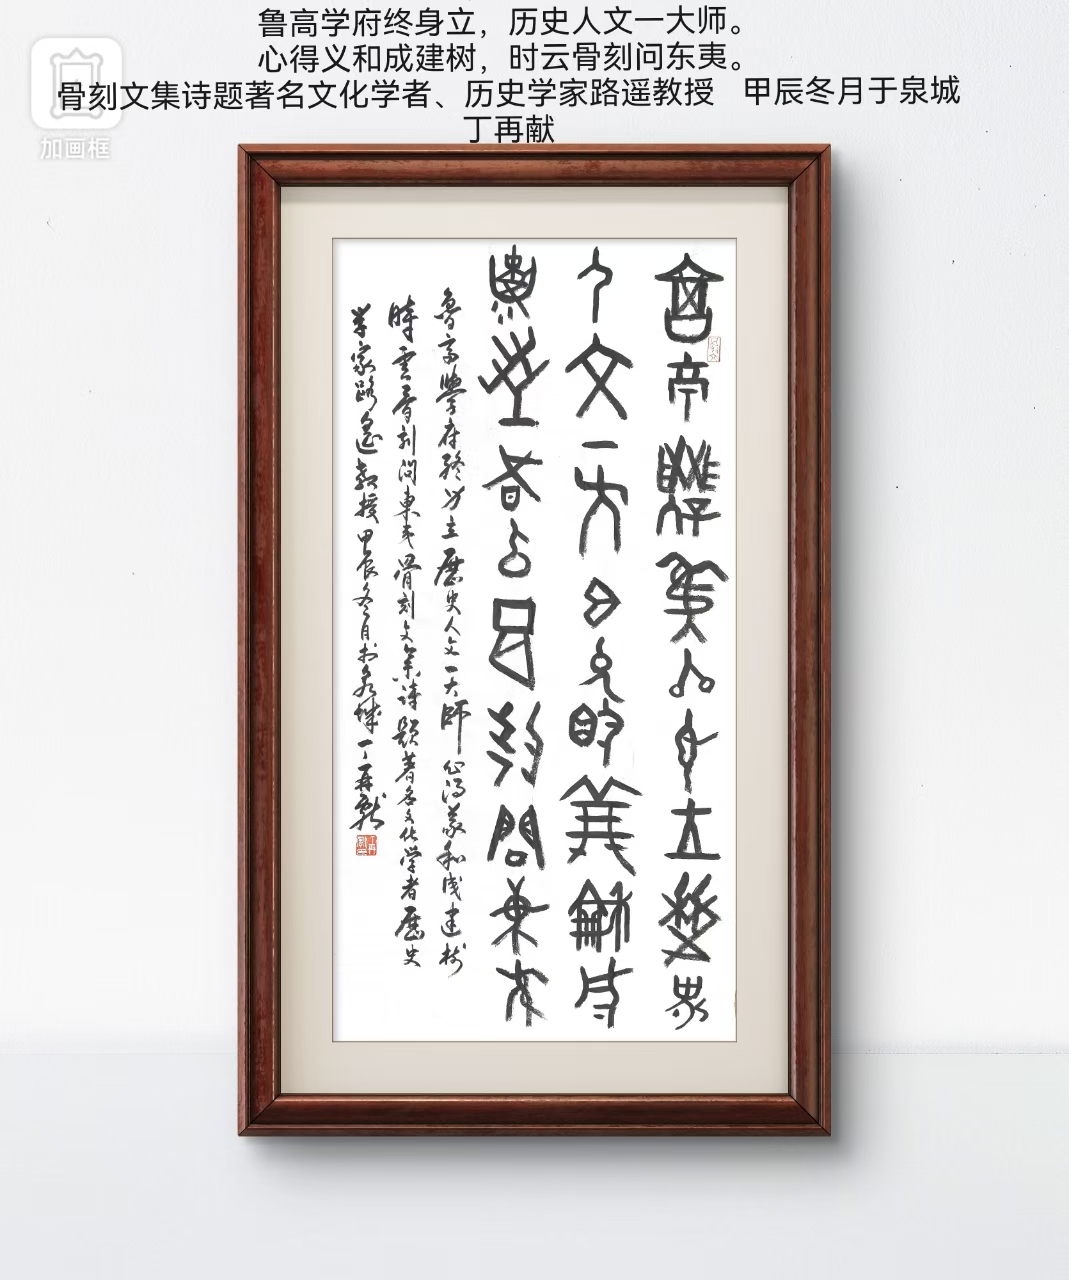 鲁高学府终身立，历史人文一大师。
心得义和成建树，时云骨刻问东夷。
骨刻文集诗题著名文化学者、历史学家路遥教授 甲辰冬月于泉城
丁再献
加画框
魯高學府終身立歷史
人文一大師心得義和成
建樹時云骨刻問東夷
魯高學府終身立歷史人文一大師心得義和成建樹
時雲骨刻問東夷骨刻文集詩題著名文化學者歷史
学家路遥教授甲辰冬月於泉城丁再献